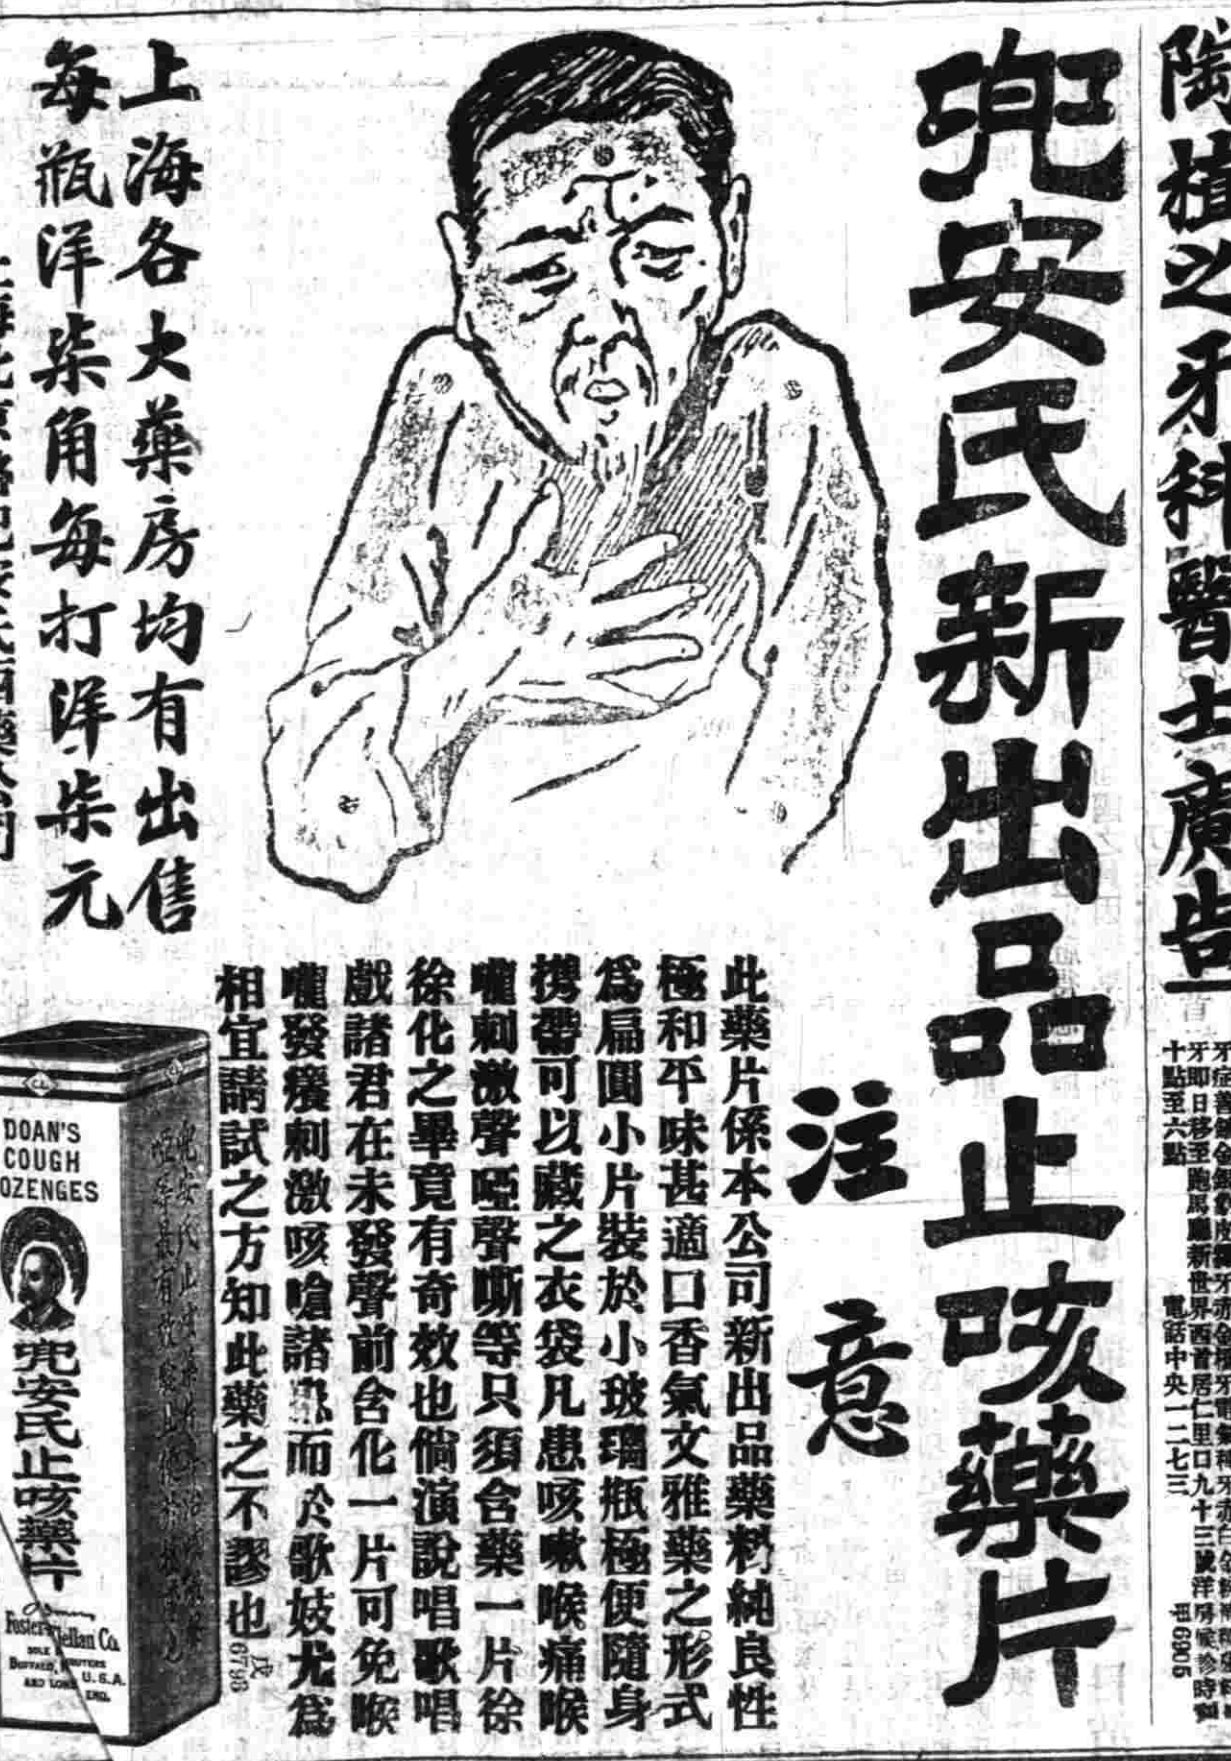 陶植之牙科醫士廣告
牙即日移至跑馬廳新世界西首居仁里口九十三號洋房候診時刻
十點至六點
電話中央一二七三
甲6905
兜安氏新出品止咳藥片
注意
此藥片係本公司新出品藥料純良性
極和平味甚適口香氣文雅藥之形式
為扁圓小片裝於小玻璃瓶極便隨身
携帶可以藏之衣袋凡患咳嗽喉痛喉
嚨刺激聲啞聲嘶等只須含藥一片徐
徐化之畢竟有奇效也倘演說唱歌唱
戲諸君在未發聲前含化一片可免喉
嚨發癢刺激咳嗆諸患而於歌妓尤為
相宜請試之方知此藥之不謬也
戊6793
上海各大藥房均有出售
每瓶洋柒角每打洋柒元
DOAN'S
COUGH
OZENGES
兜安氏止咳藥片
Foster-
lellan Co.
BUFFALO,
U.S.A.
AND
ENG.